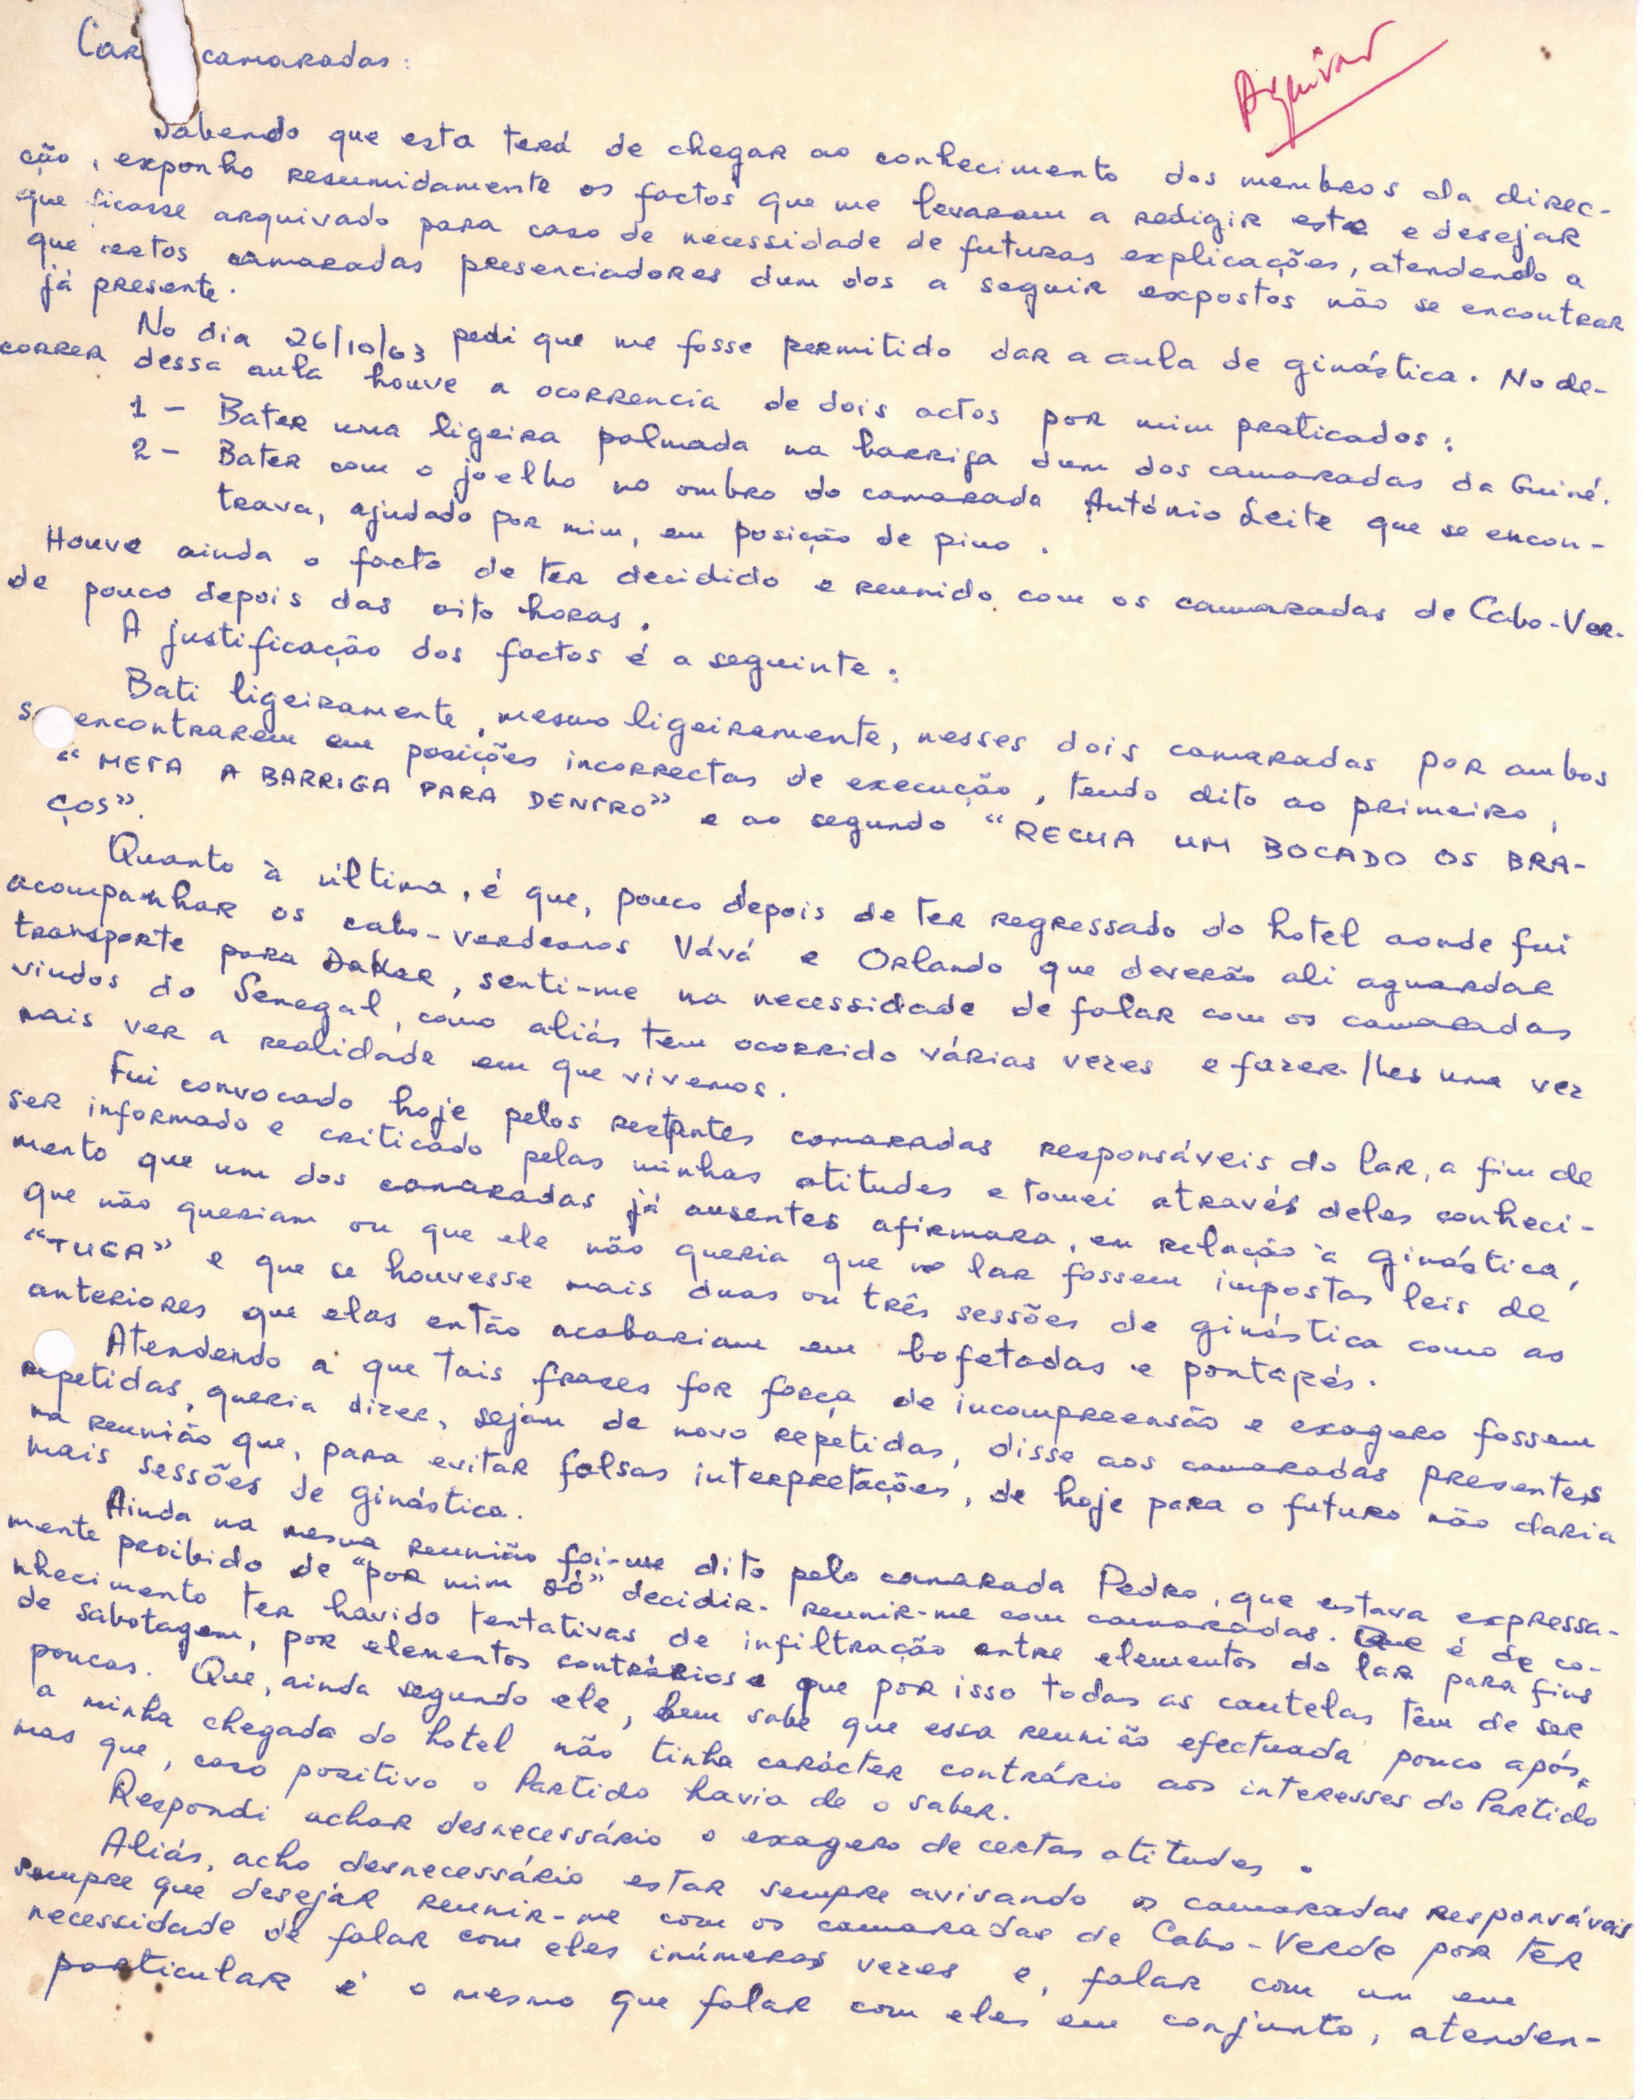 Arquivar
Car camaradas:
Sabendo que esta terá de chegar ao conhecimento dos membros da direc-
ção, exponho resumidamente os factos que me levaram a redigir esta e desejar
que ficasse arquivado para caso de necessidade de futuras explicações, atendendo a
que certos camaradas presenciadores dum dos a seguir expostos não se encontrar
já presente.
No dia 26/10/63 pedi que me fosse permitido dar a aula de ginástica. No de-
correr dessa aula houve a ocorrencia de dois actos por mim praticados:
1 - Bater uma ligeira palmada na barriga dum dos camaradas da Guiné.
2 - Bater com o joelho no ombro do camarada António Leite que se encon-
trava, ajudado por mim, em posição de pino.
Houve ainda o facto de ter decidido e reunido com os camaradas de Cabo-Ver-
de pouco depois das oito horas.
A justificação dos factos é a seguinte:
Bati ligeiramente, mesmo ligeiramente, nesses dois camaradas por ambos
se encontrarem em posições incorrectas de execução, tendo dito ao primeiro,
"META A BARRIGA PARA DENTRO" e ao segundo "RECUA UM BOCADO OS BRA-
ÇOS".
Quanto à última, é que, pouco depois de ter regressado do hotel aonde fui
acompanhar os cabo-verdeanos Vává e Orlando que deverão ali aguardar
transporte para Dakar, senti-me na necessidade de falar com os camaradas
vindos do Senegal, como aliás tem ocorrido várias vezes e fazer-lhes uma vez
mais ver a realidade em que vivemos.
Fui convocado hoje pelos restantes camaradas responsáveis do lar, a fim de
ser informado e criticado pelas minhas atitudes e tomei através deles conheci-
mento que um dos camaradas já ausentes afirmara, em relação à ginástica,
que não queriam ou que ele não queria que no lar fossem impostas leis de
"TUGA" e que se houvesse mais duas ou três sessões de ginástica como as
anteriores que elas então acabariam em bofetadas e pontapés.
Atendendo a que tais frases for força de incompreensão e exagero fossem
repetidas, queria dizer, sejam de novo repetidas, disse aos camaradas presentes
na reunião que, para evitar falsas interpretações, de hoje para o futuro não daria
mais sessões de ginástica.
Ainda na mesma reunião foi-me dito pelo camarada Pedro, que estava expressa-
mente proibido de "por mim só" decidir reunir-me com camaradas. Que é de co-
nhecimento ter havido tentativas de infiltração entre elementos do lar para fins
de sabotagem, por elementos contrários e que por isso todas as cautelas têm de ser
poucas. Que, ainda segundo ele, bem sabe que essa reunião efectuada pouco após
a minha chegada do hotel não tinha carácter contrário aos interesses do Partido
mas que, caso positivo o Partido havia de o saber.
Respondi achar desnecessário o exagero de certas atitudes.
Aliás, acho desnecessário estar sempre avisando os camaradas responsáveis
sempre que desejar reunir-me com os camaradas de Cabo-Verde por ter
necessidade de falar com eles inúmeras vezes e, falar com um em
particular é o mesmo que falar com eles em conjunto, atenden-